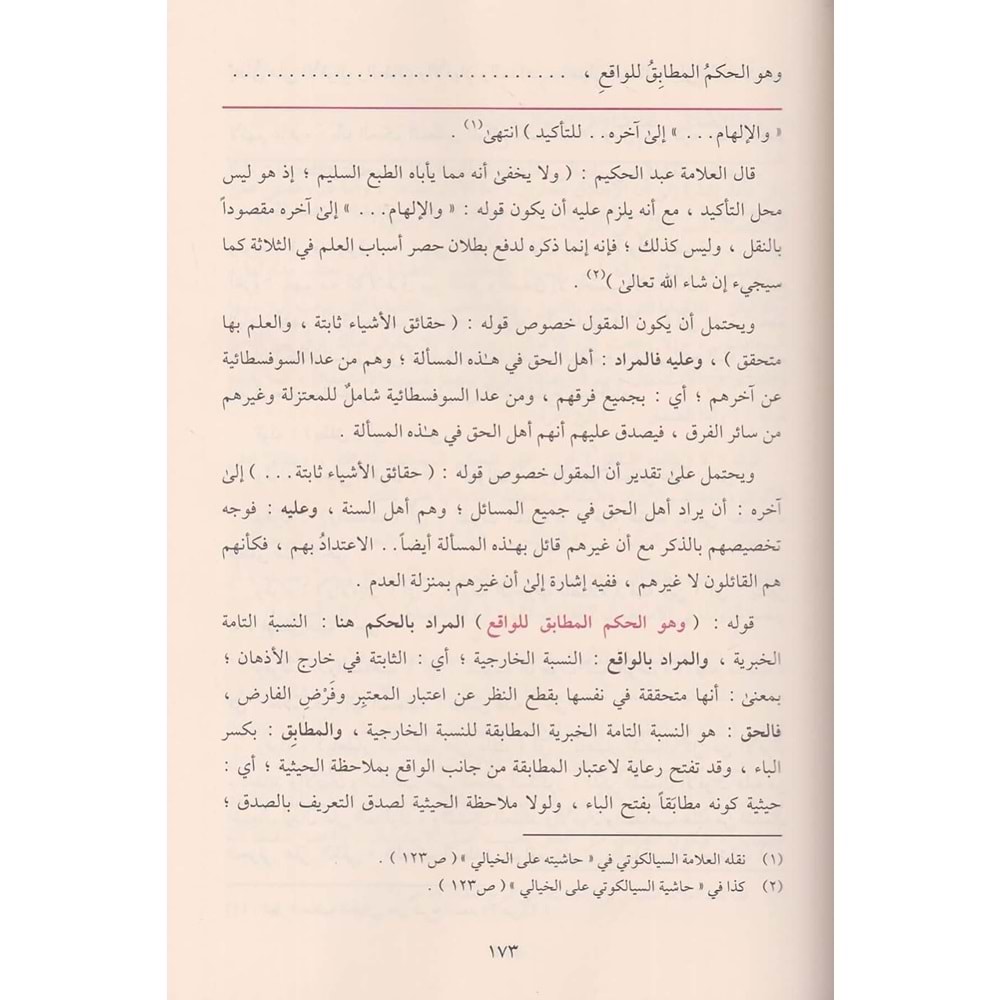 وهو الحكمُ المطابِقُ للواقعِ ، . . . . . . . . . . . . . . . . . . . . . . . . . . . . . . . .
« والإلهام. . . » إلىٰ آخره. . للتأكيد ) انتهىٰ(١) .
قال العلامة عبد الحكيم : ( ولا يخفىٰ أنه مما يأباه الطبع السليم ؛ إذ هو ليس
محل التأكيد ، مع أنه يلزم عليه أن يكون قوله : « والإلهام. . . » إلىٰ آخره مقصوداً
بالنقل ، وليس كذلك ؛ فإنه إنما ذكره لدفع بطلان حصر أسباب العلم في الثلاثة كما
سيجيء إن شاء الله تعالىٰ )(٢) .
ويحتمل أن يكون المقول خصوص قوله : ( حقائق الأشياء ثابتة ، والعلم بها
متحقق ) ، وعليه فالمراد : أهل الحق في هـٰذه المسألة ؛ وهم من عدا السوفسطائية
عن آخرهم ؛ أي : بجميع فرقهم ، ومن عدا السوفسطائية شاملٌ للمعتزلة وغيرهم
من سائر الفرق ، فيصدق عليهم أنهم أهل الحق في هـٰذه المسألة .
ويحتمل علىٰ تقدير أن المقول خصوص قوله : ( حقائق الأشياء ثابتة. . . ) إلىٰ
آخره : أن يراد أهل الحق في جميع المسائل ؛ وهم أهل السنة ، وعليه : فوجه
تخصيصهم بالذكر مع أن غيرهم قائل بهـٰذه المسألة أيضاً. . الاعتدادُ بهم ، فكأنهم
هم القائلون لا غيرهم ، ففيه إشارة إلىٰ أن غيرهم بمنزلة العدم .
قوله : ( وهو الحكم المطابق للواقع ) المراد بالحكم هنا : النسبة التامة
الخبرية ، والمراد بالواقع : النسبة الخارجية ؛ أي : الثابتة في خارج الأذهان ؛
بمعنىٰ : أنها متحققة في نفسها بقطع النظر عن اعتبار المعتبِر وفَرْضِ الفارض ،
فالحق : هو النسبة التامة الخبرية المطابقة للنسبة الخارجية ، والمطابِق : بكسر
الباء ، وقد تفتح رعاية لاعتبار المطابقة من جانب الواقع بملاحظة الحيثية ؛ أي :
حيثية كونه مطابَقاً بفتح الباء ، ولولا ملاحظة الحيثية لصدق التعريف بالصدق ؛
(١) نقله العلامة السيالكوتي في « حاشيته على الخيالي » ( ص١٢٣ ) .
(٢) كذا في « حاشية السيالكوتي على الخيالي » ( ص١٢٣ ) .
١٧٣